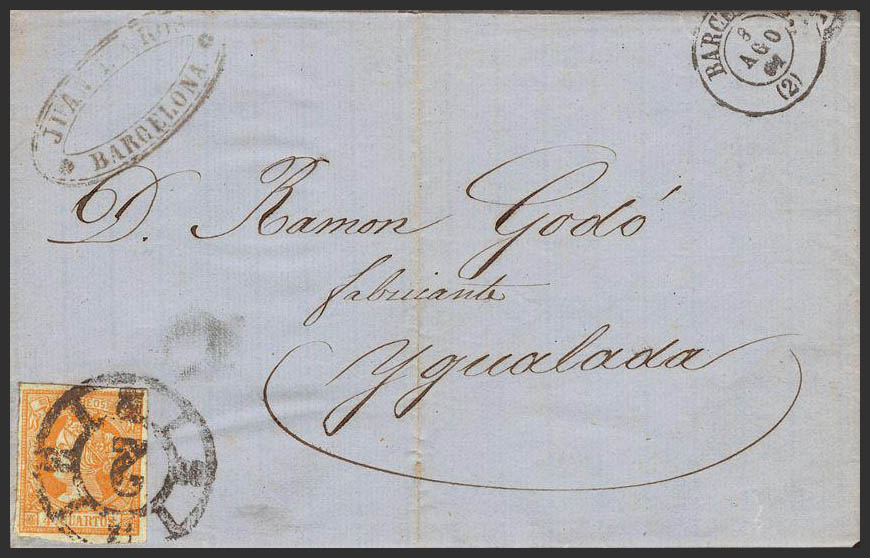 JUAN
BARCELONA
BARCEL
8
AGO
(2)
D. Ramon Godó
fabricante
Ygualada
2
CUARTOS